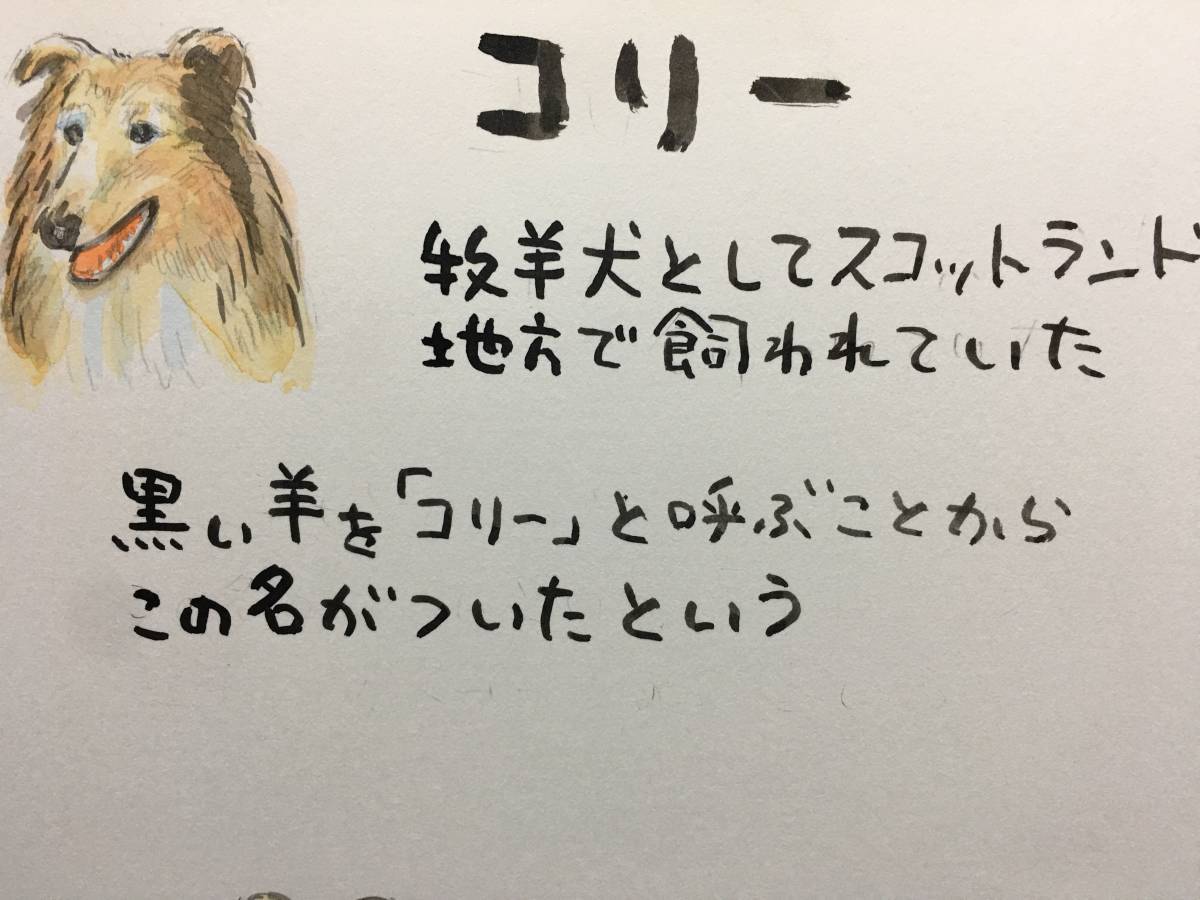 コリー
牧羊犬としてスコットランド
地方で飼われていた
黒い羊を「コリー」と呼ぶことから
この名がついたという